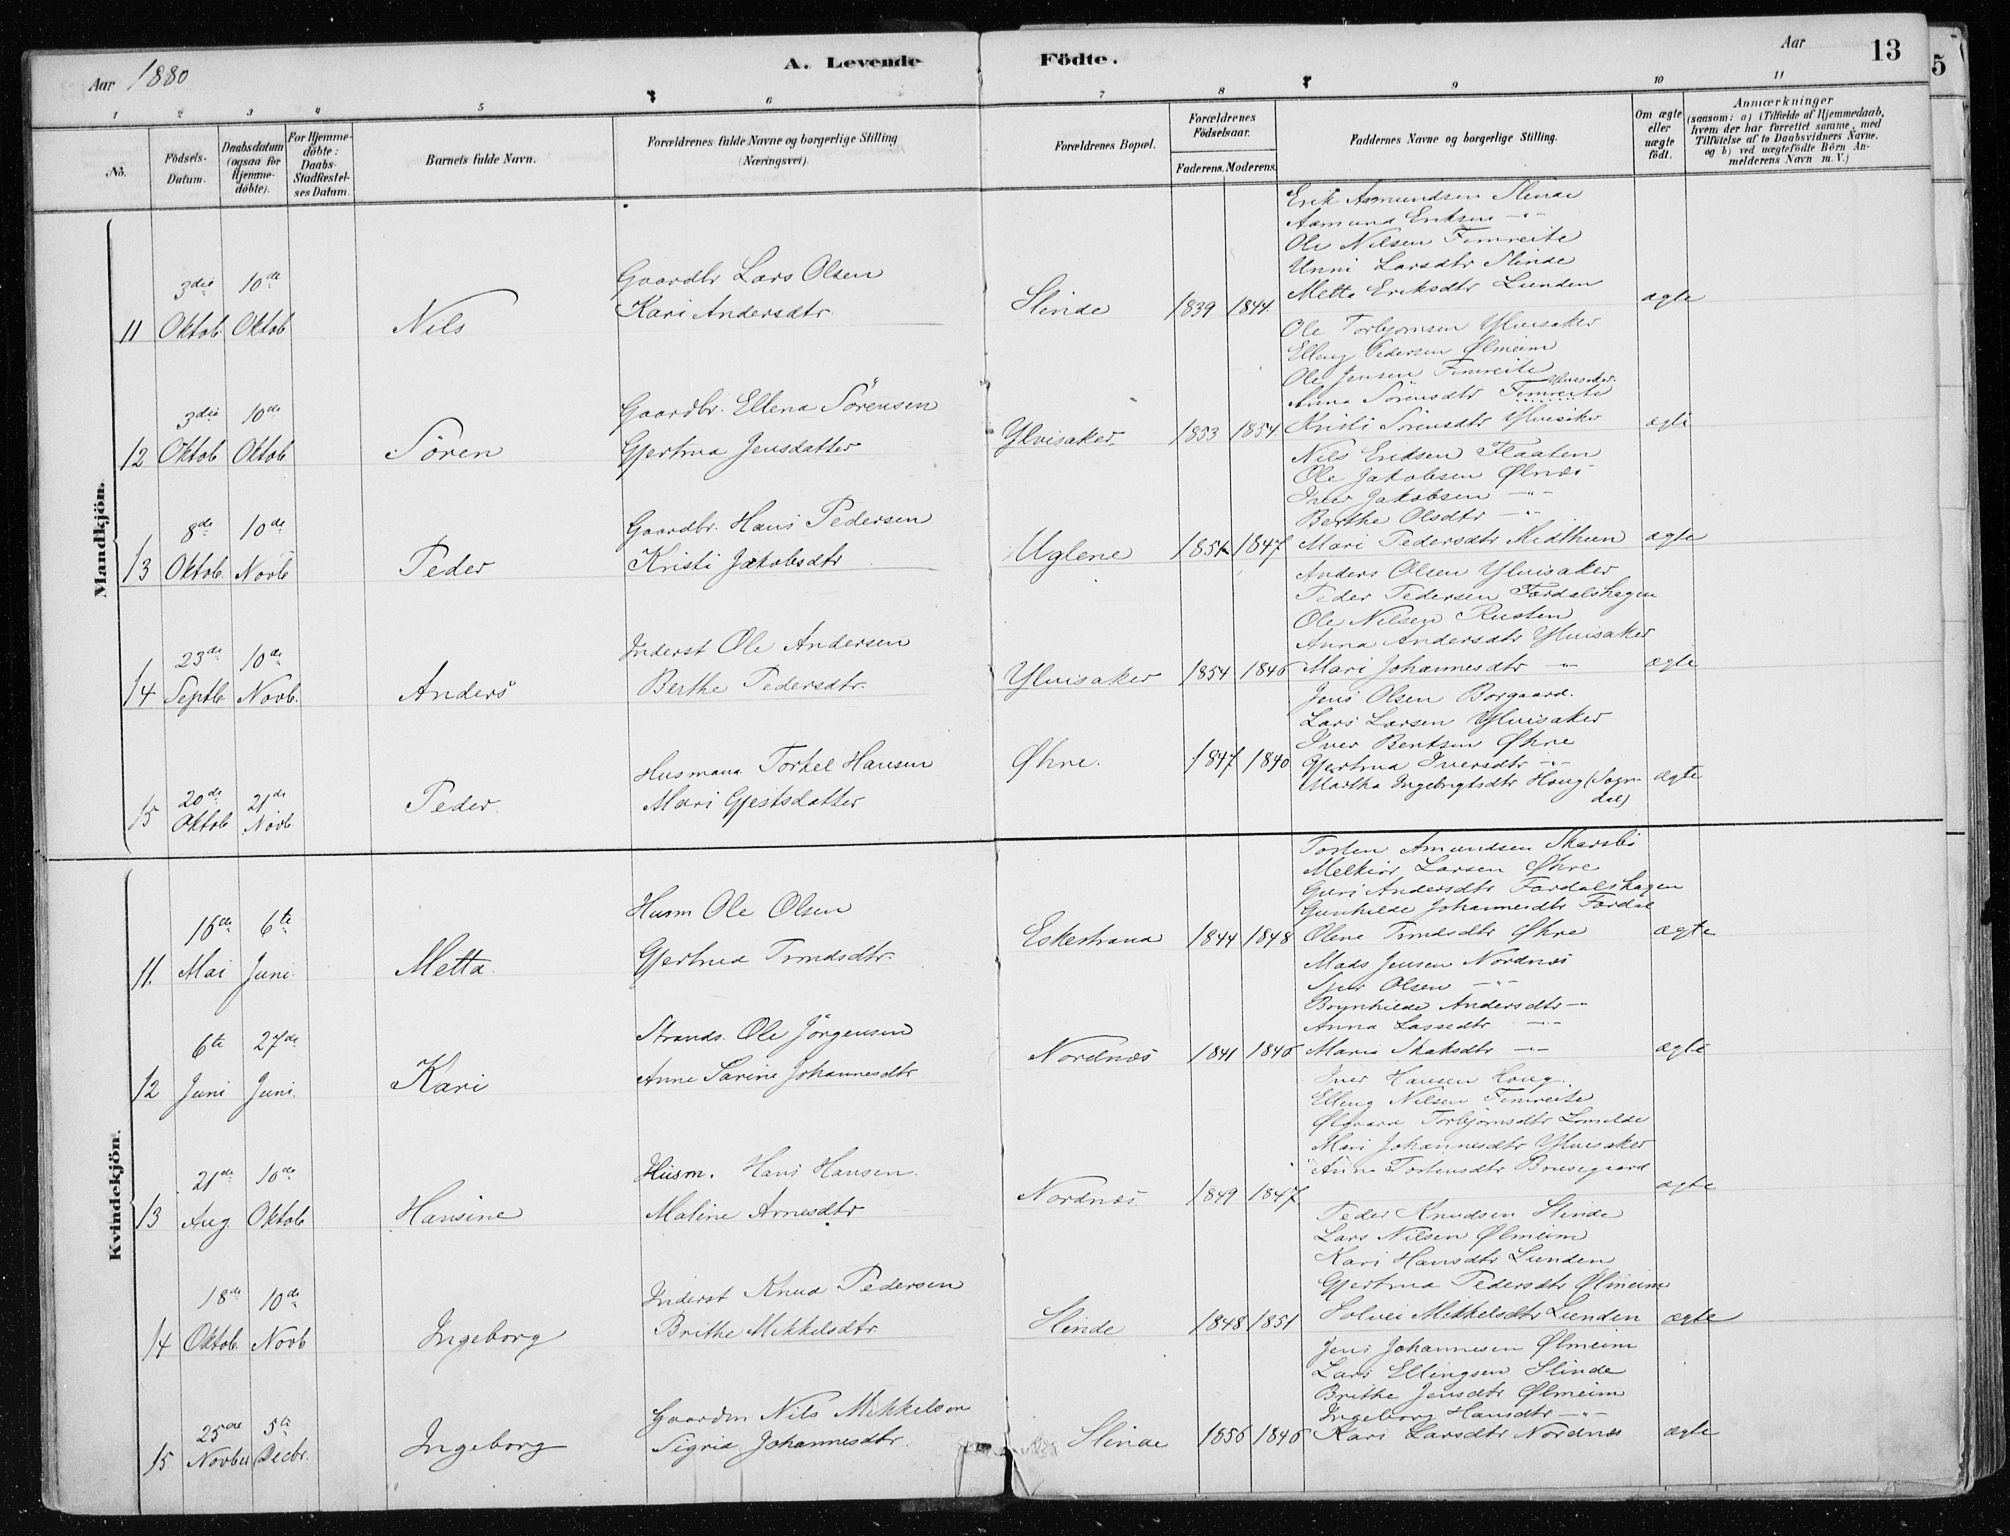 Aar 1880
A. Levende Födte.
Aar
13
5
1 2 3 4 5 6 7 8 9 10 11
No.
Födsels-Datum.
Daabsdatum (ogsaa for Hjemme-döbte).
For Hjemme-döbte: Daabs-Stadfæstel-ses Datum.
Barnets fulde Navn.
Forældrenes fulde Navne og borgerlige Stilling (Næringsvei).
Forældrenes Bopæl.
Forældrenes Födselsaar.
Faderens. Moderens.
Faddernes Navne og borgerlige Stilling.
Om ægte eller uægte födt.
Anmærkninger
(saasom: a) i Tilfælde af Hjemmedaab, hvem der har forrettet samme, med Tilföielse af to Daabsvidners Navne. og b) ved uægtefödte Börn Anmelderens Navn m. V.)
Mandkjön.
11
3die Oktob
10de Oktob
Nils
Gaardbr Lars Olsen
Kari Andersdtr
Slinde
1839 1844
Erik Asmundsen Slinde
Aamund Eriksen -"-
Ole Nilsen Fimreite
Unni Larsdtr Slinde
Metta Eriksdtr Lunden
ægte
12
3die Oktob
10de Oktob
Sören
Gaardbr. Ellend Sörensen
Gjertrud Jensdatter
Ylvisaker
1853 1854
Ole Torbjornsen Ylvisaker
Elleng Pedersen Ølmeim
Ole Jensen Fimreite
Ylvisaker
Anna Sörensdtr Fimreite
Kristi Sörensdtr Ylvisaker
ægte
13
8de Oktob
10de Novb
Peder
Gaardbr. Hans Pedersen
Kristi Jakobsdtr
Uglene
1851 1847
Nils Eriksen Flaaten
Ole Jakobsen Ølnæs
Iver Jakobsen -"-
Berthe Olsdtr -"-
Mari Pedersdtr Midthun
ægte
14
23de Septb
10de Novb.
Anders
Inderst Ole Andersen
Berthe Pedersdtr.
Ylvisaker
1854 1846
Anders Olsen Ylvisaker
Peder Pedersen Fardalshagen
Ole Nilsen Rusten
Anna Andersdtr Ylvisaker
Mari Johannesdtr -"-
ægte
15
20de Oktob
21de Novb
Peder.
Husmand Torkel Hansen
Mari Gjestsdatter
Øhre.
1847 1840
Jens Olsen Borgaard.
Lars Larsen Ylvisaker
Iver Bentsen Øhre
Gjertrud Iversdtr -"-
Martha Ingebrigtsdtr Houg (Sogn-
dal)
ægte
Kvindekjön.
11.
16de Mai
6te Juni
Metta.
Husm Ole Olsen
Gjertrud Trondsdtr.
Eskestrand
1844 1848
Torsten Amundsen Skarsbö
Melkior Larsen Øhre
Guri Andersdtr Fardalshagen
Gunhilde Johannesdtr Fardal
Olene Trondsdtr Øhre
ægte
12
6te Juni
27de Juni.
Kari
Strands. Ole Jörgensen
Anne Sarine Johannesdtr
Nordnæs
1841 1846
Mads Jensen Nordnæs
Sjur Olsen -"-
Brynhilde Andersdtr -"
Anna Lassedtr -"-
Maria Skaksdtr -"-
ægte
13
21de Aug.
10de Oktob
Hansine
Husm. Hans Hansen.
Maline Arnesdtr
Nordnæs
1849 1847
Iver Hansen Houg.
Elleng Nilsen Fimreite
Torbjörnsdtr Lomelde
Mari Johannesdtr Ylvisaker
Anna Torstensdtr Brusegaard
ægte
14
18de Oktob.
10de Novb
Ingeborg
Inderst Knud Pedersen
Brithe Mikkelsdtr
Slinde
1848 1851
Peder Knudsen Slinde
Lars Nilsen Ølmeim
Kari Hansdtr Lunden
Gjertrud Pedersdtr Ølmeim
Solvei Mikkelsdtr Lunden
ægte
15
25de Novber
5te Decbr.
Ingeborg
Gaardm Nils Mikkelsen
Sigrid Johannesdtr.
Slinde
1856 1846
Jens Johannesen Ølmeim
Lars Ellingsen Slinde
Brithe Jensdtr Ølmeim
Ingeborg Hansdtr -"-
Kari Larsdtr Nordnæs
ægte